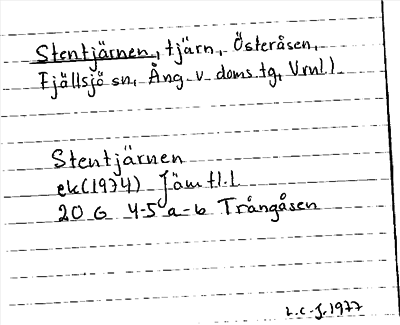 Stentjärnen, tjärn, Österåsen,
Fjällsjö sn, Ång. v. doms.tg, Vrnl)
Stentjärnen
ek(1974) Jämtl.l
20 G 4-5 a-b Trångåsen
L.C-J. 1977